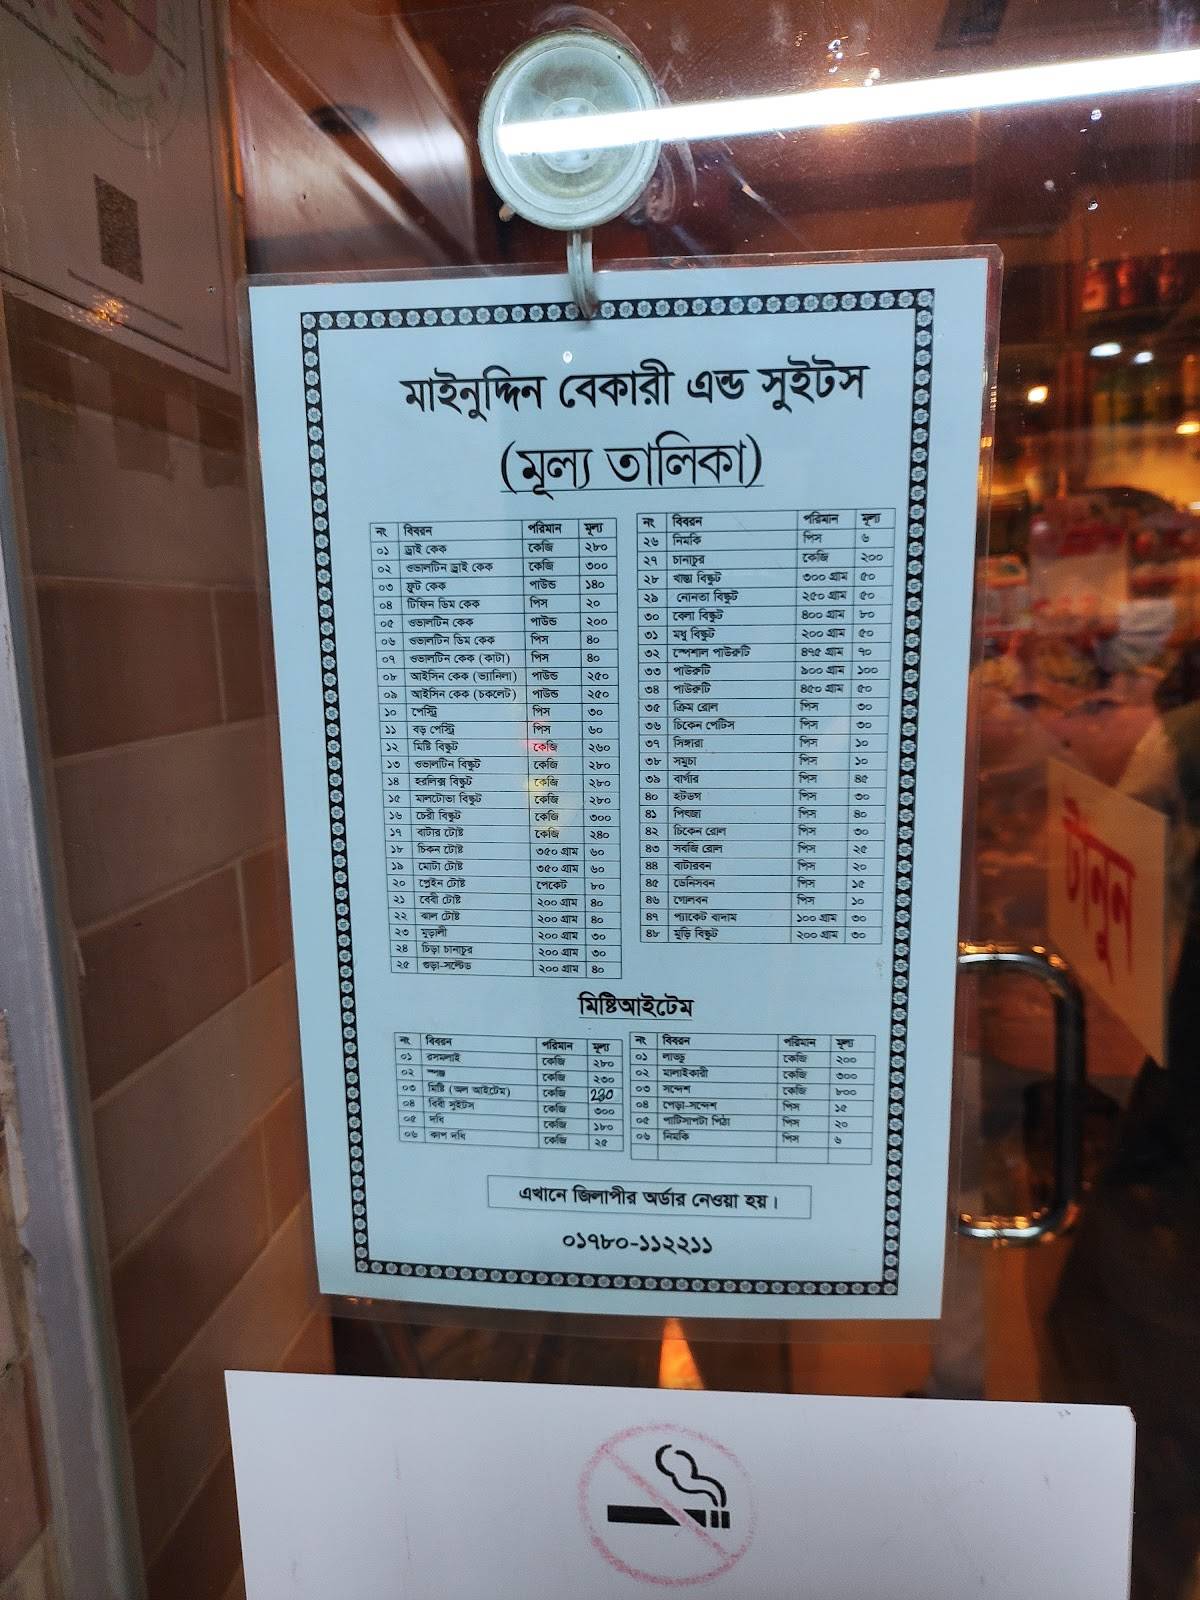 মাইনুদ্দিন বেকারী এন্ড সুইটস
(মূল্য তালিকা)
নং বিবরন পরিমান মূল্য
০১ ড্রাই কেক কেজি ২৮০
০২ ওভালটিন ড্রাই কেক কেজি ৩০০
০৩ ফ্রুট কেক পাউন্ড ১৪০
০৪ টিফিন ডিম কেক পিস ২০
০৫ ওভালটিন কেক পাউন্ড ২০০
০৬ ওভালটিন ডিম কেক পিস ৪০
০৭ ওভালটিন কেক (কাটা) পিস ৪০
০৮ আইসিন কেক (ভ্যানিলা) পাউন্ড ২৫০
০৯ আইসিন কেক (চকলেট) পাউন্ড ২৫০
১০ পেস্ট্রি পিস ৩০
১১ বড় পেস্ট্রি পিস ৬০
১২ মিষ্টি বিস্কুট কেজি ২৬০
১৩ ওভালটিন বিস্কুট কেজি ২৮০
১৪ হরলিক্স বিস্কুট কেজি ২৮০
১৫ মালটোভা বিস্কুট কেজি ২৮০
১৬ চেরী বিস্কুট কেজি ৩০০
১৭ বাটার টোষ্ট কেজি ২৪০
১৮ চিকন টোষ্ট ৩৫০ গ্রাম ৬০
১৯ মোটা টোষ্ট ৩৫০ গ্রাম ৬০
২০ প্লেইন টোষ্ট পেকেট ৮০
২১ বেবী টোষ্ট ২০০ গ্রাম ৪০
২২ ঝাল টোষ্ট ২০০ গ্রাম ৪০
২৩ মুড়ালী ২০০ গ্রাম ৩০
২৪ চিড়া চানাচুর ২০০ গ্রাম ৩০
২৫ গুড়া-সল্টেড ২০০ গ্রাম ৪০
নং বিবরন পরিমান মূল্য
২৬ নিমকি পিস ৬
২৭ চানাচুর কেজি ২০০
২৮ খাস্তা বিস্কুট ৩০০ গ্রাম ৫০
২৯ নোনতা বিস্কুট ২৫০ গ্রাম ৫০
৩০ বেলা বিস্কুট ৪০০ গ্রাম ৮০
৩১ মধু বিস্কুট ২০০ গ্রাম ৫০
৩২ স্পেশাল পাউরুটি ৪৭৫ গ্রাম ৭০
৩৩ পাউরুটি ৯০০ গ্রাম ১০০
৩৪ পাউরুটি ৪৫০ গ্রাম ৫০
৩৫ ক্রিম রোল পিস ৩০
৩৬ চিকেন পেটিস পিস ৩০
৩৭ সিঙ্গারা পিস ১০
৩৮ সমুচা পিস ১০
৩৯ বার্গার পিস ৪৫
৪০ হটডগ পিস ৩০
৪১ পিৎজা পিস ৪০
৪২ চিকেন রোল পিস ৩০
৪৩ সবজি রোল পিস ২৫
৪৪ বাটারবন পিস ২০
৪৫ ডেনিসবন পিস ১৫
৪৬ গোলবন পিস ১০
৪৭ প্যাকেট বাদাম ১০০ গ্রাম ৩০
৪৮ মুড়ি বিস্কুট ২০০ গ্রাম ৩০
মিষ্টিআইটেম
নং বিবরন পরিমান মূল্য
০১ রসমলাই কেজি ২৮০
০২ স্পঞ্জ কেজি ২৩০
০৩ মিষ্টি (অল আইটেম) কেজি
০৪ বিবী সুইটস কেজি ৩০০
০৫ দধি কেজি ১৮০
০৬ কাপ দধি কেজি ২৫
নং বিবরন পরিমান মূল্য
০১ লাড্ডু কেজি ২০০
০২ মালাইকারী কেজি ৩০০
০৩ সন্দেশ কেজি ৮০০
০৪ পেড়া-সন্দেশ পিস ১৫
০৫ পাটিসাপটা পিঠা পিস ২০
০৬ নিমকি পিস ৬
এখানে জিলাপীর অর্ডার নেওয়া হয়।
০১৭৮০-১১২২১১
টানুন